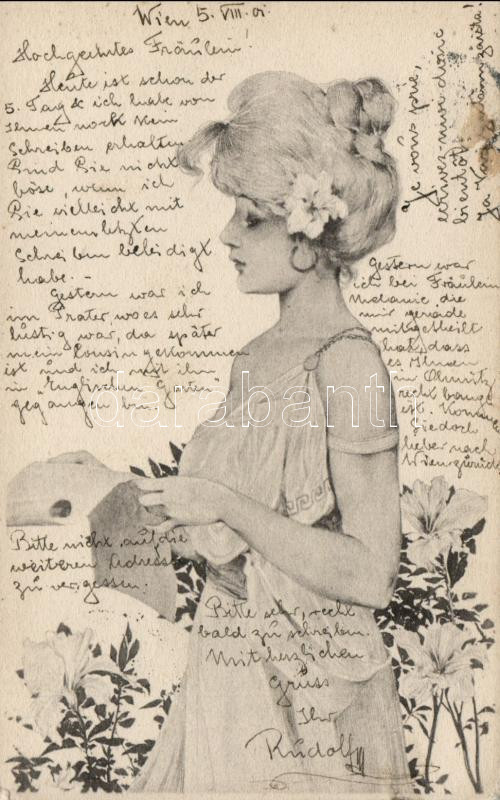 Wien 5. VIII. 01
Hochgeehrtes Fräulein!
Heute ist schon der
5. Tag & ich habe von
Ihnen noch kein
Schreiben erhalten
Sind Sie nicht
böse, wenn ich
Sie vielleicht mit
meinem letzten
Schreiben beleidigt
habe. –
Gestern war ich
im Prater, wo es sehr
lustig war, da später
mein Cousin gekommen
ist und ich mit ihm
in Englischen Garten
gegangen bin.
Gestern war
ich bei Fräulein
Melanie die
mir gerade
mitgetheilt
hat, dass
es Ihnen
in Olmütz
recht bange
ist. Kommen
Sie doch
lieber nach
Wien zurück
Bitte nicht auf die
weiteren Adresse
zu vergessen.
Bitte sehr, recht
bald zu schreiben.
Mit herzlichen
Grüss
Ihr
Rudolf
Je vous prie,
écrivez-moi donc
bientôt
darabanth